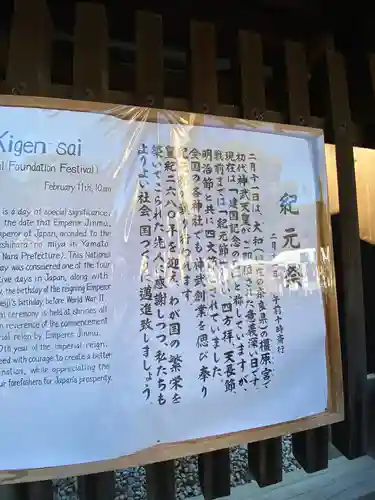 Kigen sai
l Foundation Festival)
February 11th, 10am
is a day of special significance,
the date that Emperor Jinmu,
mperor of Japan, to the
shihara no miya in Yamato
Nara Prefecture). This National
day was considered one of the four
tive days in Japan, along with
, the birthday of the reigning Emperor
eiji's birthday before World War II.
al ceremony is held at shrines all
n reverence of the commencement
rial reign by Emperor Jinmu.
0th year of the imperial reign,
eed with courage to create a better
nation, while appreciating the
ur forefathers for Japan's prosperity.
紀元祭
二月十一日 午前十時斎行
二月十一日は、大和(現在の奈良県)の橿原宮で
初代神武天皇がご即位された意義深い日です。
現在は「建国記念の日」と称しますが、
戦前までは「紀元節」として、四方拝、天長節、
明治節と共に四大節の一つとされていました。
全国の各神社でも神武創業を偲び奉り
紀元祭が執り行われます。
皇紀二六八〇年を迎え、わが国の繁栄を
築いてこられた先人に感謝しつつ、私たちも
よりよい社会、国づくりに邁進致しましょう。